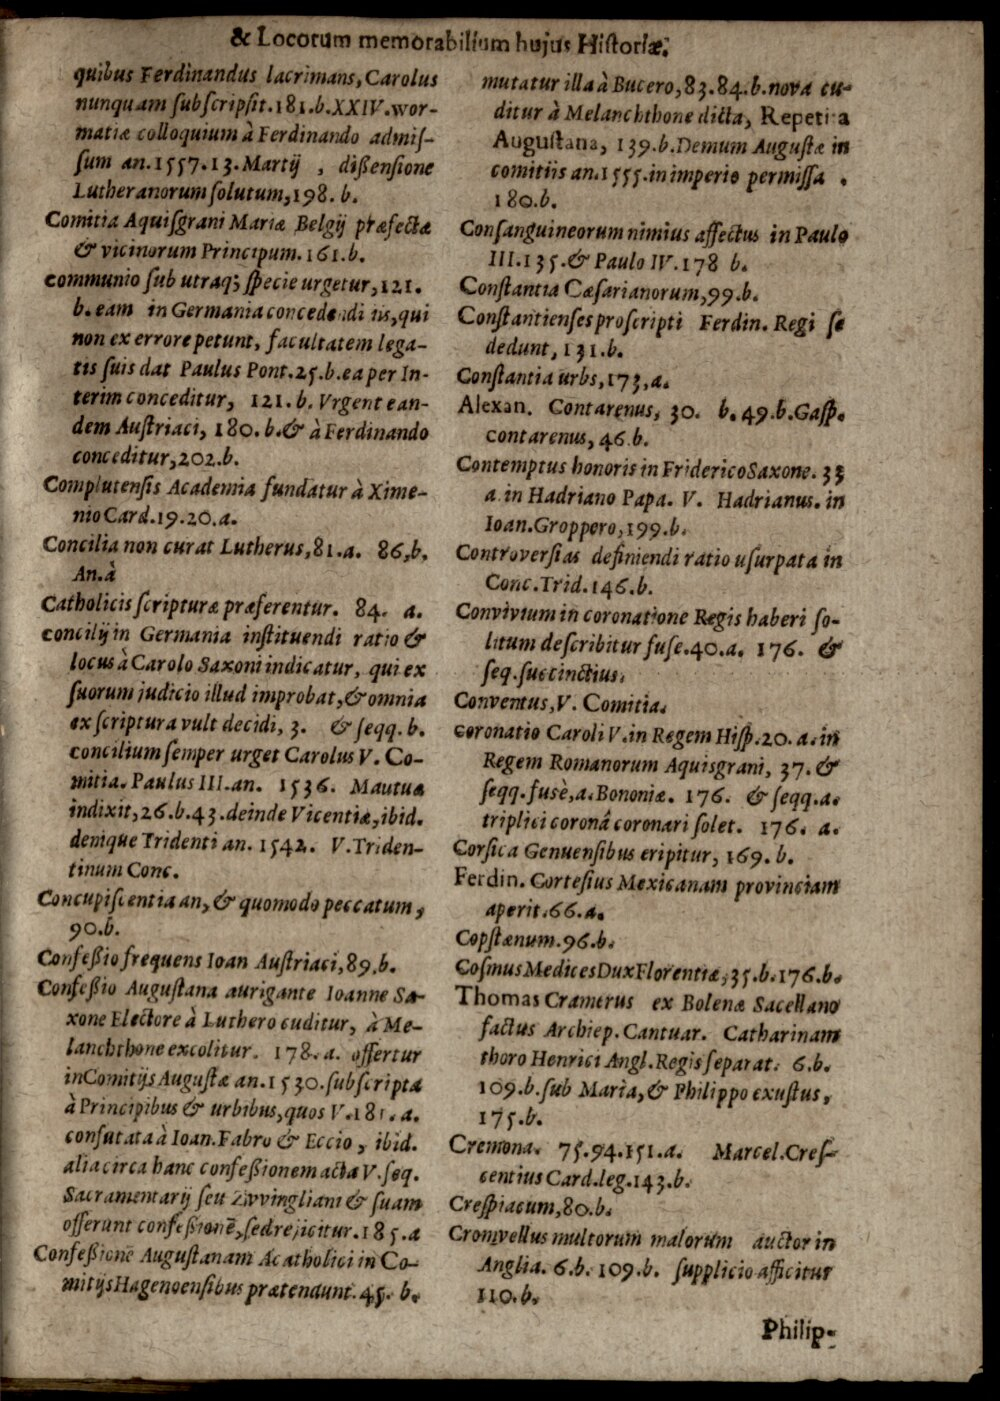 & Locorum memorabilium hujus Historiæ.
quibus Ferdinandus lacrimans, Carolus
nunquam subscripsit. 181. b. XXIV. wor-
matiæ colloquium à Ferdinando admis-
sum an. 1557. 13. Martij , dißensione
Lutheranorum solutum, 198. b.
Comitia Aquisgrani Mariæ Belgij præfectæ
& vicinorum Principum. 161. b.
communio sub utraq; specie urgetur, 121.
b. eam in Germania concedendi iis, qui
non ex errore petunt, facultatem lega-
tis suis dat Paulus Pont. 25. b. ea per In-
terim conceditur, 121. b. Vrgent ean-
dem Austriaci, 180. b. & à Ferdinando
conceditur, 202. b.
Complutensis Academia fundatur à Xime-
nio Card. 19. 20. a.
Concilia non curat Lutherus, 81. a. 86, b.
An. à
Catholicis scripturæ præferentur. 84. a.
concilij in Germania instituendi ratio &
locus à Carolo Saxoni indicatur, qui ex
suorum judicio illud improbat, & omnia
ex scriptura vult decidi, 3. & seqq. b.
concilium semper urget Carolus V. Co-
mitia. Paulus III. an. 1536. Mautua
indixit, 26. b. 43. deinde Vicentiæ, ibid.
denique Tridenti an. 1542. V. Triden-
tinum Conc.
Concupiscentia an, & quomodo peccatum,
90. b.
Confeßio frequens Ioan Austriaci, 89. b.
Confeßio Augustana aurigante Ioanne Sa-
xone Electore à Luthero cuditur, à Me-
lanchthone excolitur. 178. a. offertur
in Comitijs Augustæ an. 1530. subscripta
à Principibus & urbibus, quos V. 181. a.
confutata à Ioan. Fabro & Eccio, ibid.
alia circa hanc confeßionem acta V. seq.
Sacramentarij seu Zwvingliani & suam
offerunt confeßionē, sed rejicitur. 185. a
Confeßione Augustanam Acatholici in Co-
mitijs Hagenoensibus prætendunt. 45. b.
mutatur illa à Bucero, 83. 84. b. nova cu-
ditur à Melanchthone dicta, Repetita
Augustana, 139. b. Demum Augustæ in
comitiis an. 1555. in imperio permissa .
180. b.
Consanguineorum nimius affectus in Paulo
III. 135. & Paulo IV. 178 b.
Constantia Cæsarianorum, 99. b.
Constantienses proscripti Ferdin. Regi se
dedunt, 131. b.
Constantia urbs, 173, a.
Alexan. Contarenus, 30. b. 49. b. Gasp.
contarenus, 46. b.
Contemptus honoris in Friderico Saxone. 33
a. in Hadriano Papa. V. Hadrianus. in
Ioan. Groppero, 199. b.
Controversias definiendi ratio usurpata in
Conc. Trid. 146. b.
Convivium in coronatione Regis haberi so-
litum describitur fuse. 40. a. 176. &
seq. succinctius.
Conventus, V. Comitia.
coronatio Caroli V. in Regem Hisp. 20. a. in
Regem Romanorum Aquisgrani, 37. &
seqq. fusè, a. Bononiæ. 176. & seqq. a.
triplici coronâ coronari solet. 176. a.
Corsica Genuensibus eripitur, 169. b.
Ferdin. Cortesius Mexicanam provinciam
aperit. 66. a.
Copstænum. 96. b.
Cosmus Medices Dux Florentiæ, 35. b. 176. b.
Thomas Cramerus ex Bolenæ Sacellano
factus Archiep. Cantuar. Catharinam
thoro Henrici Angl. Regis separat. 6. b.
109. b. sub Maria, & Philippo exustus,
175. b.
Cremona. 75. 94. 151. a. Marcel. Cres-
centius Card. leg. 143. b.
Crespiacum, 80. b.
Cromvellus multorum malorum auctor in
Anglia. 6. b. 109. b. supplicio afficitur
110. b.
Philip-